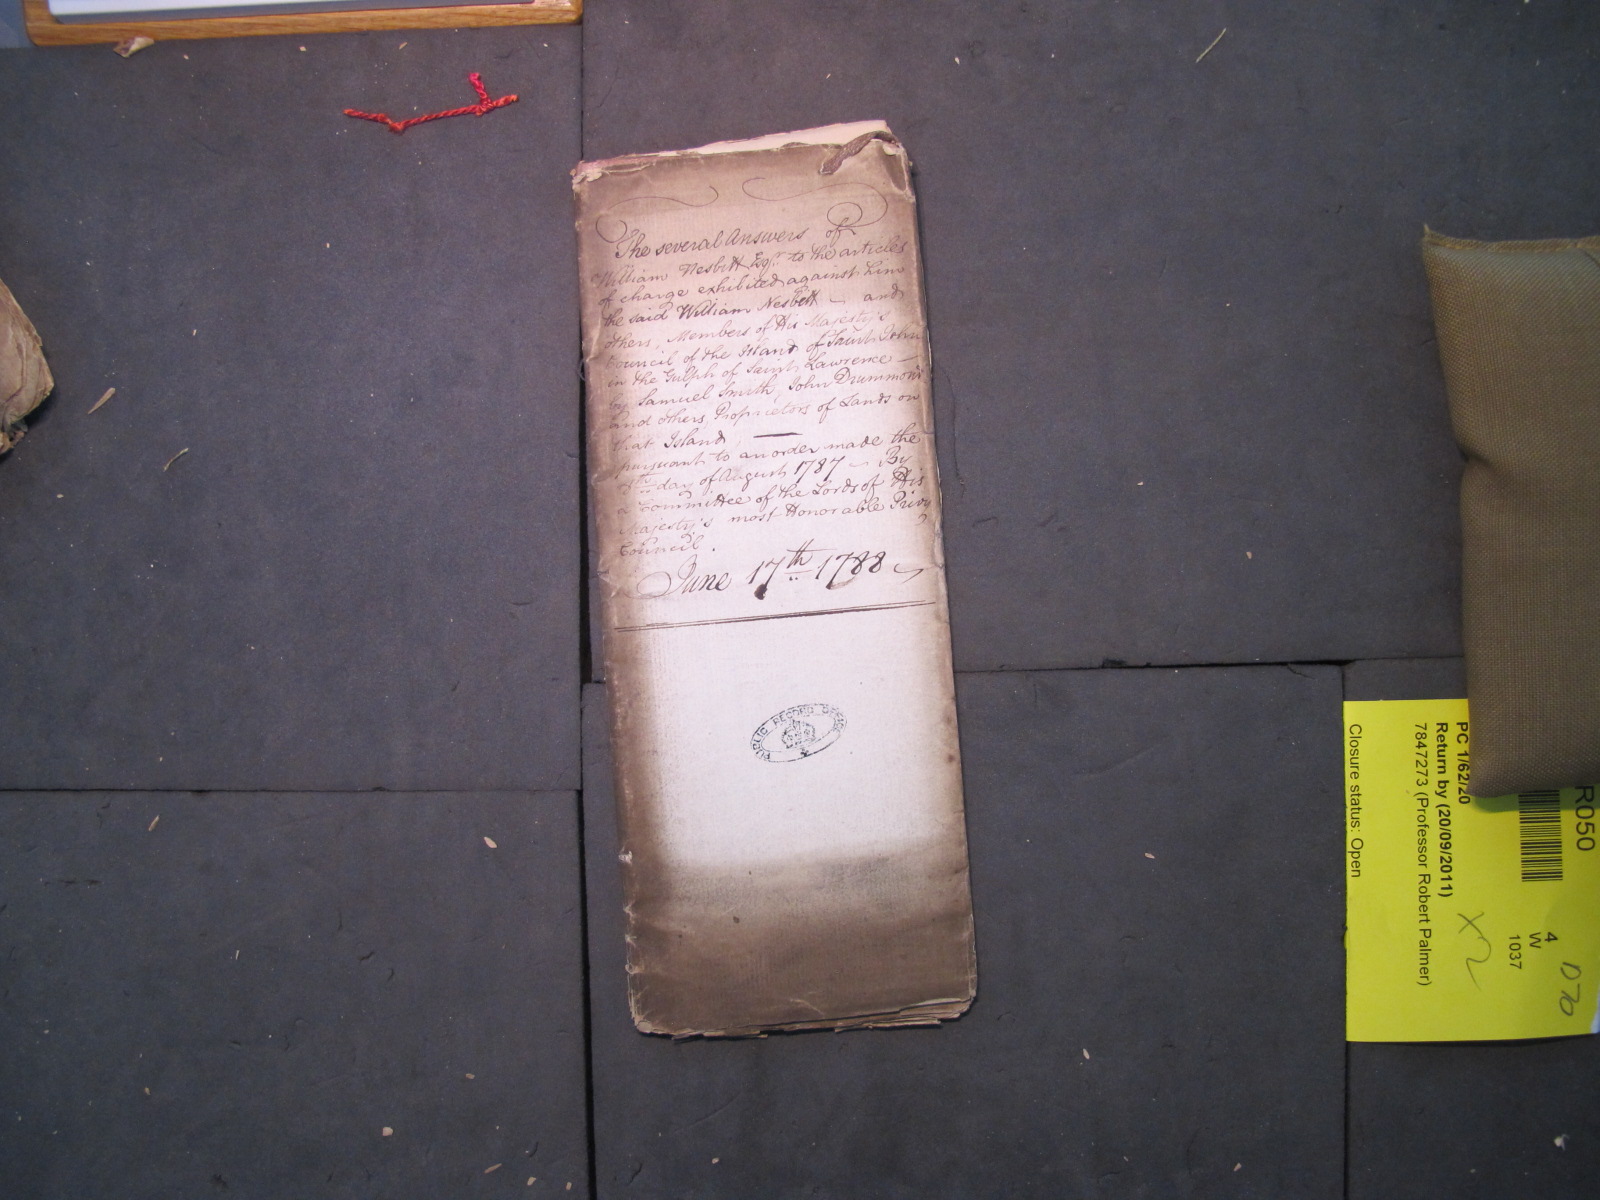 The several Answers of
William Nesbitt Esqr. to the articles
of charge exhibited against him
the said William Nesbitt and
others, Members of His Majesty's
Council of the Island of Saint John
in the Gulph of Saint Lawrence
by Samuel Smith, John Drummond
and others, Proprietors of Lands on
that Island,
pursuant to an order made the
day of August 1787 By
a Committee of the Lords of His
Majesty's most Honorable Privy
Council.
June 17th 1788
PUBLIC RECORD OFFICE
R050
4
W
1037
D70
X2
PC 1/62/20
Return by (20/09/2011)
7847273 (Professor Robert Palmer)
Closure status: Open